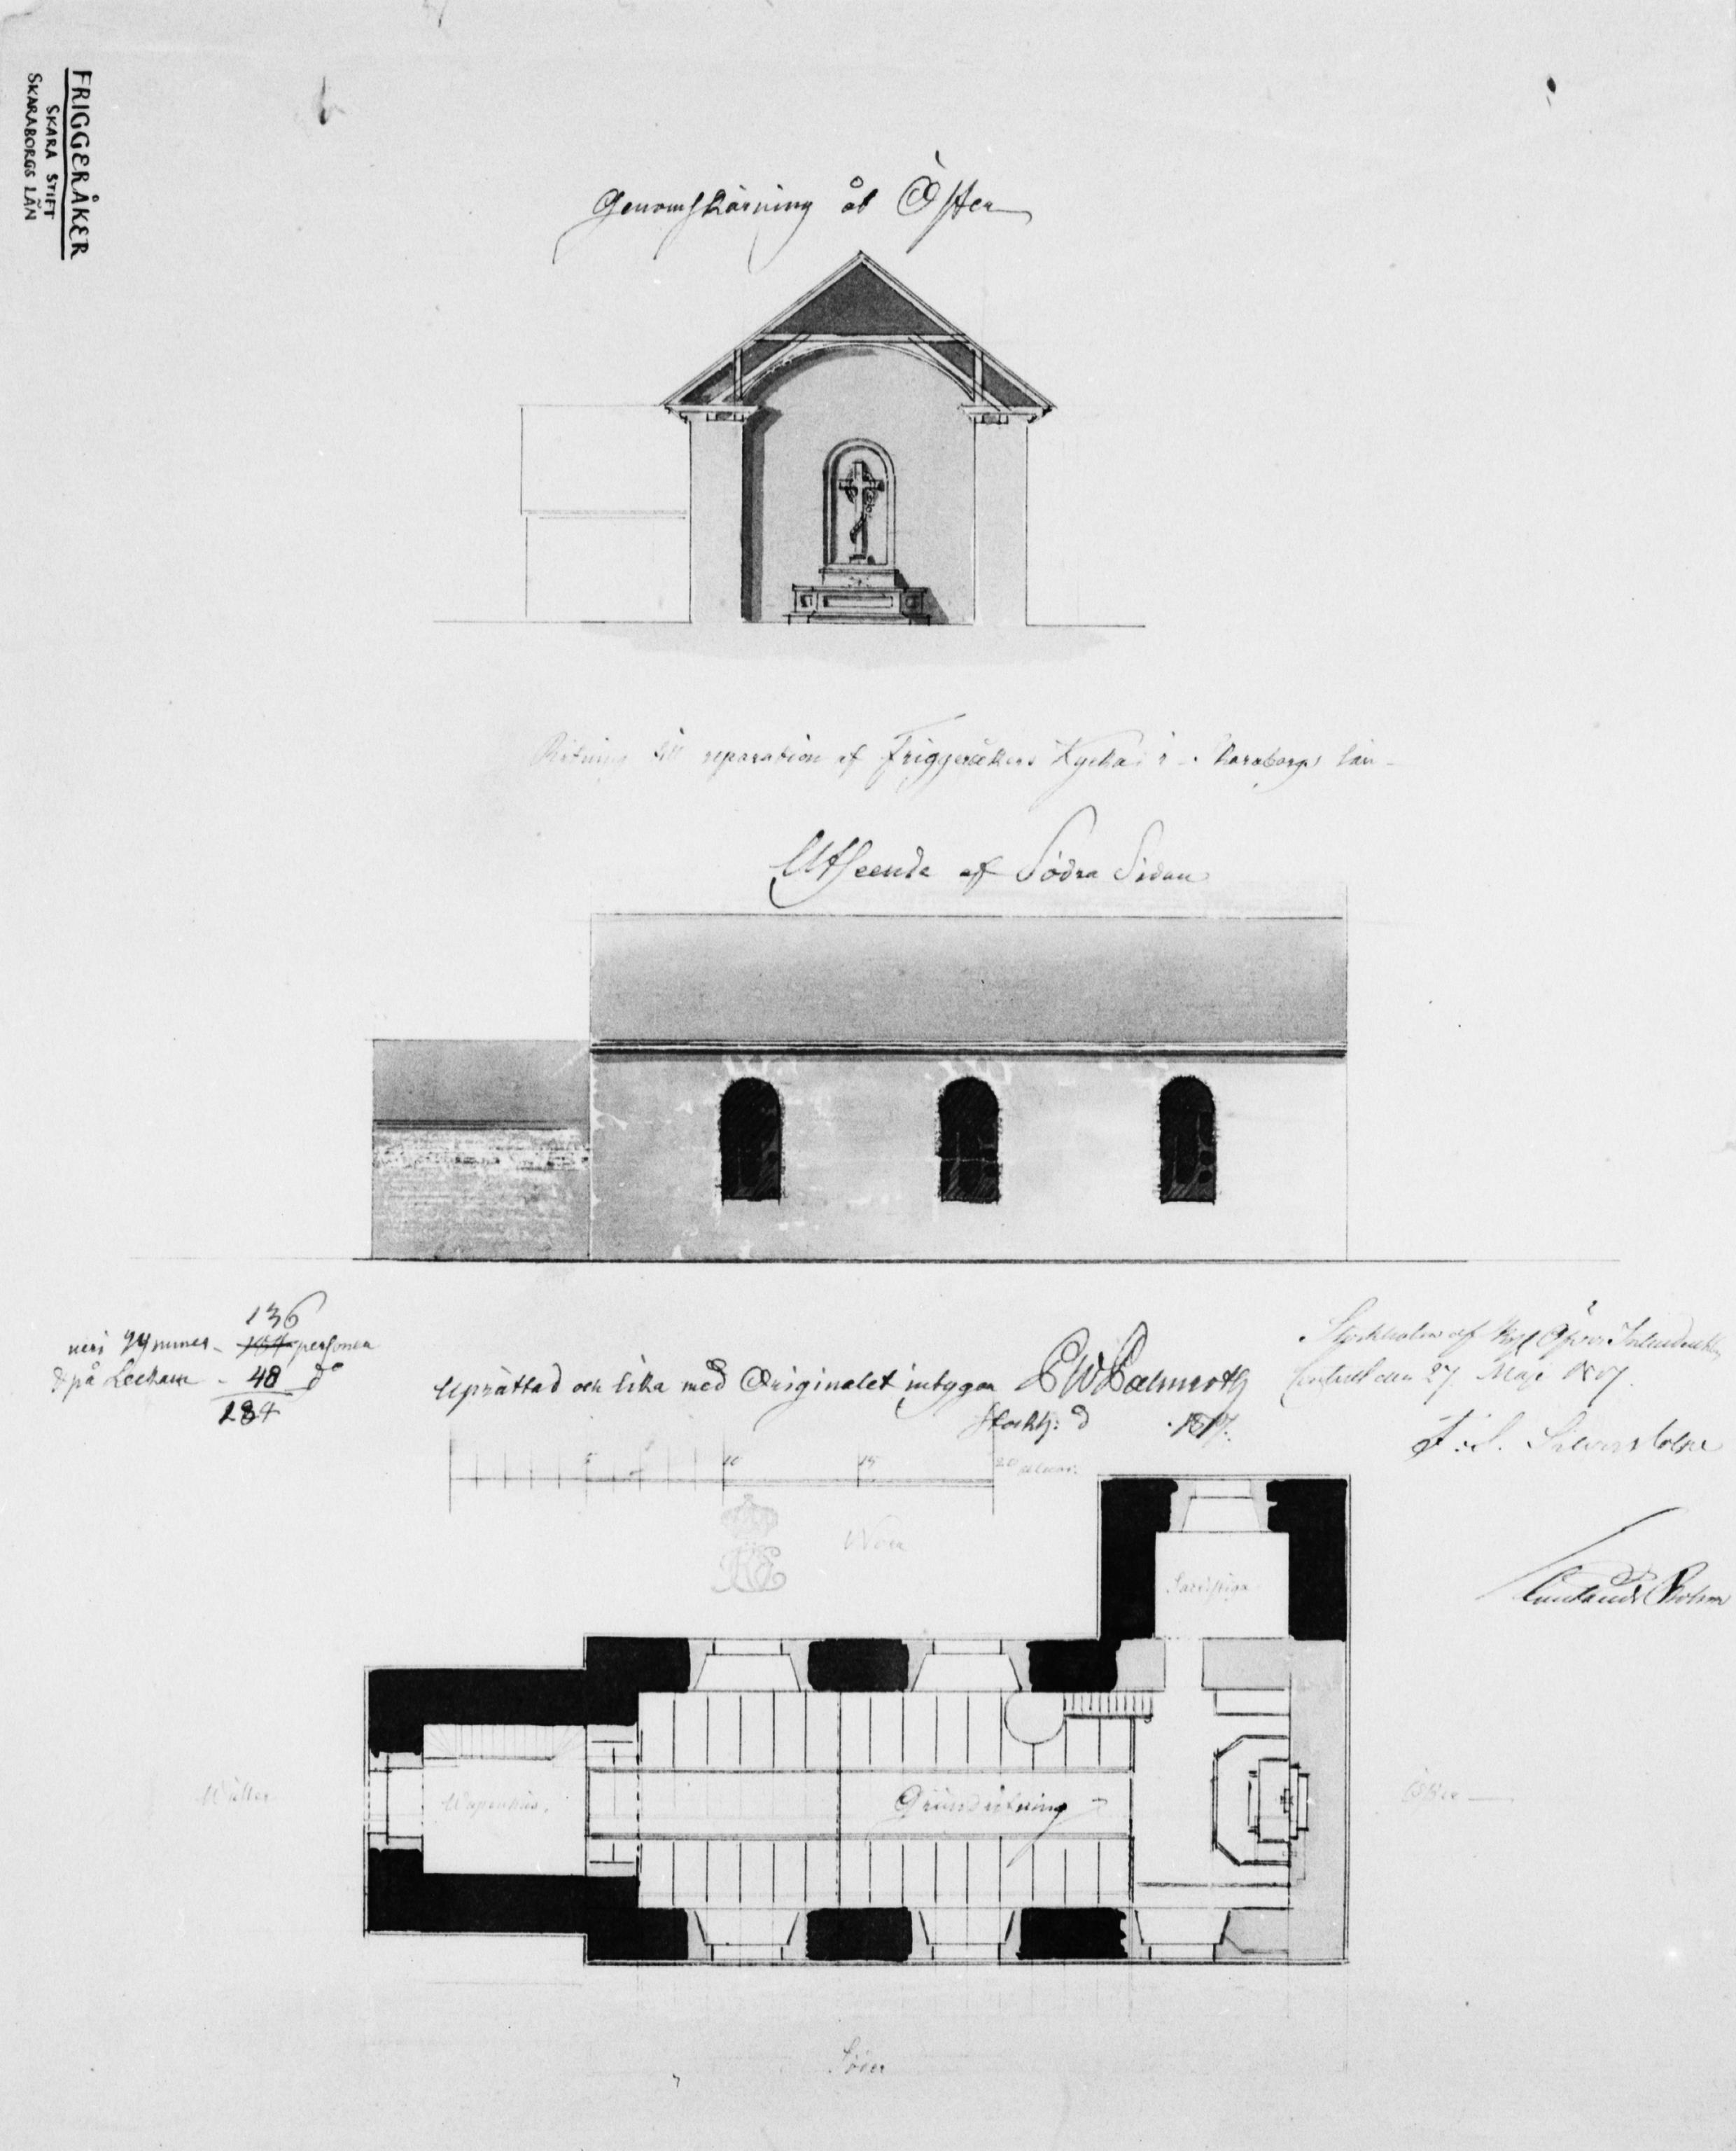 FRIGGERÅKER
SKARA STIFT
SKARABORGS LÄN
Genomskärning åt Öster
Ritning till reparation af Friggeråkers Kyrka i Skaraborgs län
Utseende af Södra Sidan
136
104 personer
på Lecktare - 48 do
184
Uprättad och lika med Originalet intygar P W Palmroth
Stockh: d 1817.
Stockholm af Kongl Öfver Intendents
Contoret den 27 Maji
5 10 15 20 alnar.
Norr
Sacristiga
Wäster
Wapenhus.
Grundritning
Öster
Söder